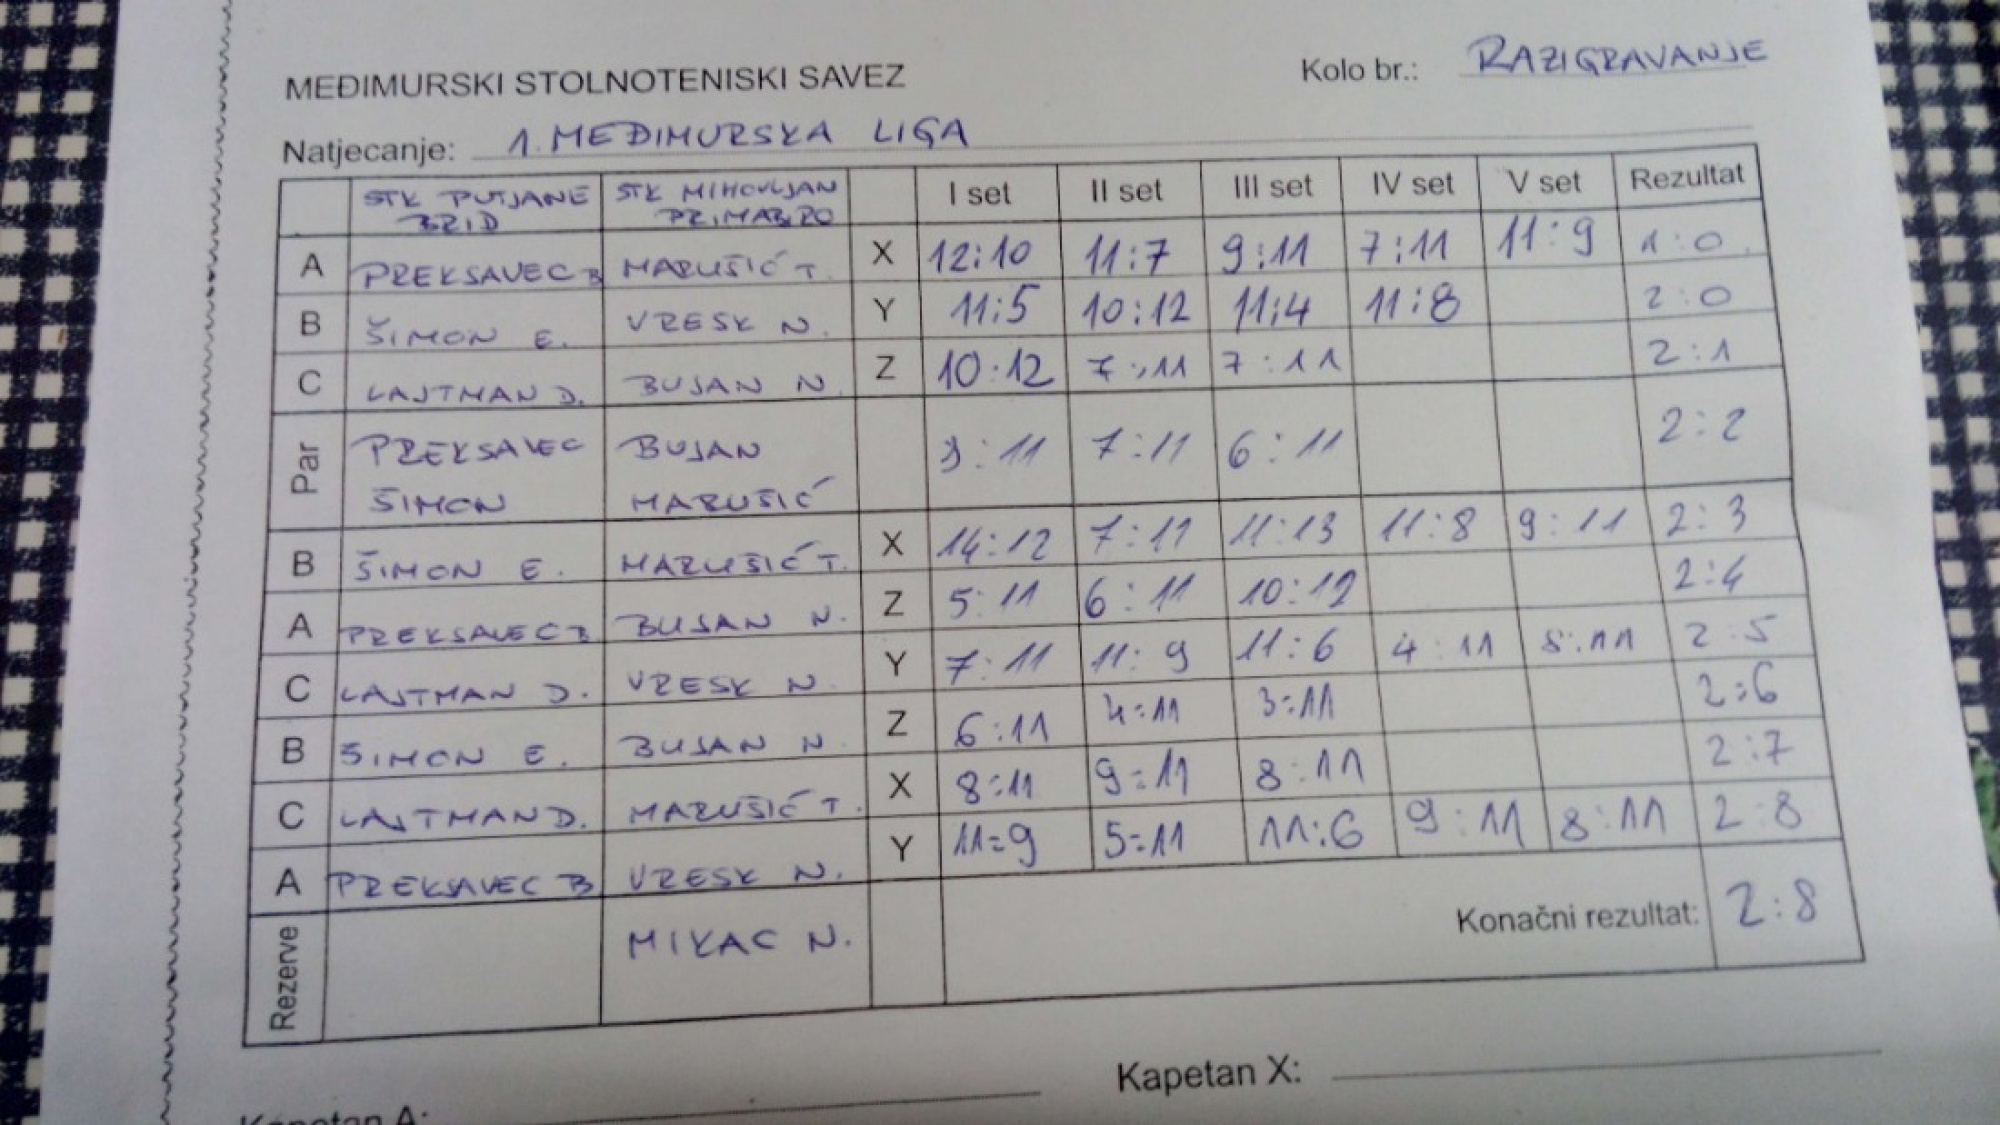 MEĐIMURSKI STOLNOTENISKI SAVEZ Kolo br.: RAZIGRAVANJE
Natjecanje: 1. MEĐIMURSKA LIGA
STK PUTJANE BRID STK MIHOVLJAN PRIMABRO I set II set III set IV set V set Rezultat
A PREKSAVEC B MARUŠIĆ T. X 12:10 11:7 9:11 7:11 11:9 1:0
B ŠIMON E. VRESK N. Y 11:5 10:12 11:4 11:8 2:0
C LAJTMAN D. BUJAN N. Z 10:12 7:11 7:11 2:1
Par PREKSAVEC ŠIMON BUJAN MARUŠIĆ 9:11 7:11 6:11 2:2
B ŠIMON E. MARUŠIĆ T. X 14:12 7:11 11:13 11:8 9:11 2:3
A PREKSAVEC B BUJAN N. Z 5:11 6:11 10:12 2:4
C LAJTMAN D. VRESK N. Y 7:11 11:9 11:6 4:11 8:11 2:5
B ŠIMON E. BUJAN N Z 6:11 4:11 3:11 2:6
C LAJTMAN D. MARUŠIĆ T. X 8:11 9:11 8:11 2:7
A PREKSAVEC B VRESK N. Y 11:9 5:11 11:6 9:11 8:11 2:8
Rezerve MIKAC N. Konačni rezultat: 2:8
Kapetan A: Kapetan X: